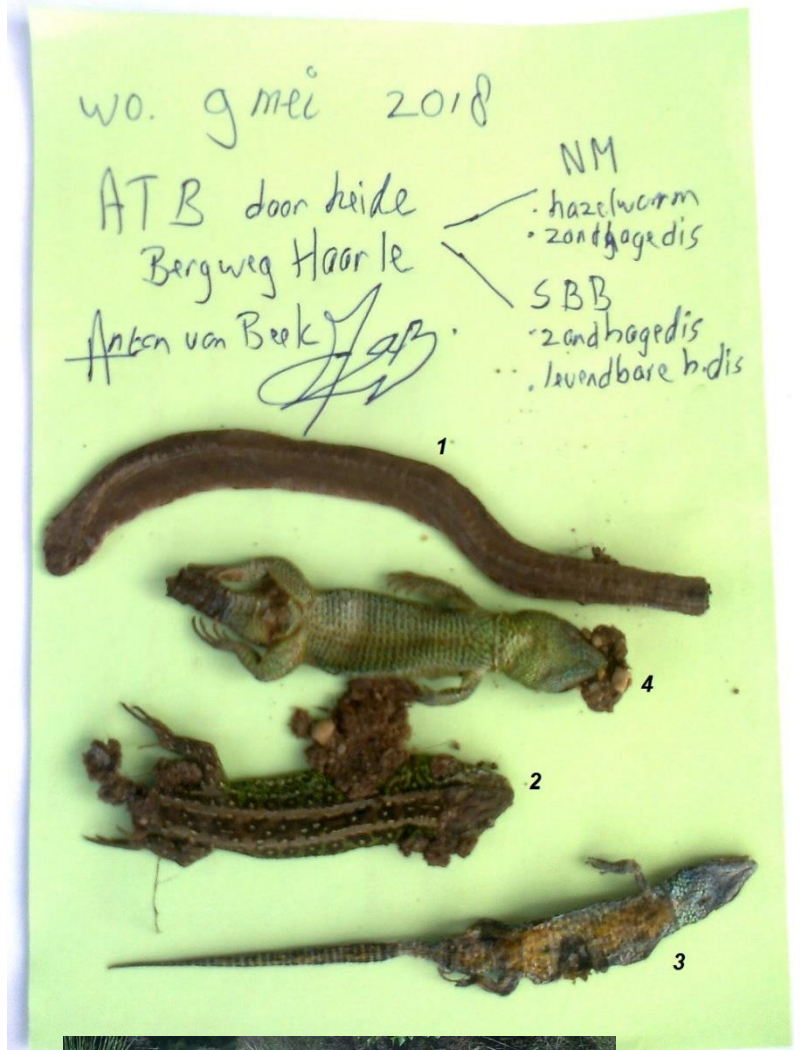 wo. 9 mei 2018
ATB door heide
Bergweg Haarle
Anton van Beek
NM
· hazelworm
· zandhagedis
SBB
· zandhagedis
· levendbare h.dis
1
4
2
3